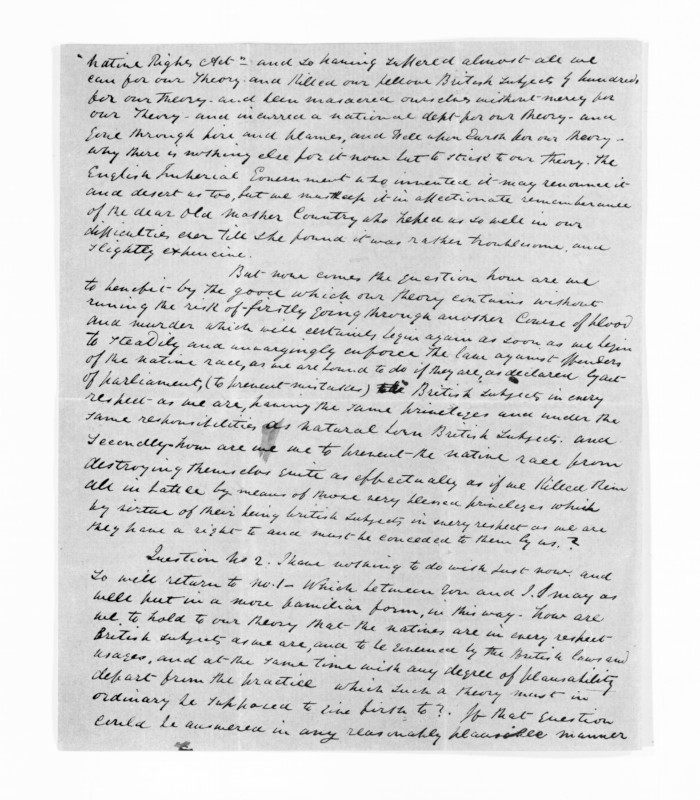 "Native Rights Act" and so having suffered almost all we
can for our Theory. and killed our fellow British Subjects by hundreds
for our theory. and been masacred ourselves without mercy for
our Theory - and incurred a national dept for our theory - and
gone through fire and flames, and Hell upon Earth for our theory -
why there is nothing else for it now but to stick to our theory. The
English Imperial Government who invented it may renounce it
and desert us too, but we must keep it in affectionate rememberance
of the dear old mother Country who helped us so well in our
difficulties, ever till she found it was rather troublesome. and
slightly expencive.
But now comes the question how are we
to benefit by the good which our theory contains without
runing the risk of - firstly going through another Course of blood
and murder which will certainly begin again as soon as we begin
to steadily and unvaryingly enforce the law against offenders
of the native race, as we are bound to do if they are, as declared by act
of parliament, (to prevent mistakes) British Subjects in every
respect as we are, having the same priveleges and under the
same responsibilities as natural born British Subjects. and
Secondly - how are we to prevent the native race from
destroying themselvs quite as effectually as if we killed them
all in battle by means of those very blessed priveleges which
by virtue of their being british subjects in every respect as we are
they have a right to and must be conceded to them by us.?
Question No 2. I have nothing to do with just now. and
so will return to no. 1 - Which between you and I. I may as
well put in a more familiar form, in this way - how are
we to hold to our theory that the natives are in every respect
British subjects as we are, and to be governed by the British laws and
usages, and at the same time with any degree of plausability
depart from the practice which such a theory must in
ordinary be supposed to give birth to?. If that question
could be answered in any reasonably plausible manner